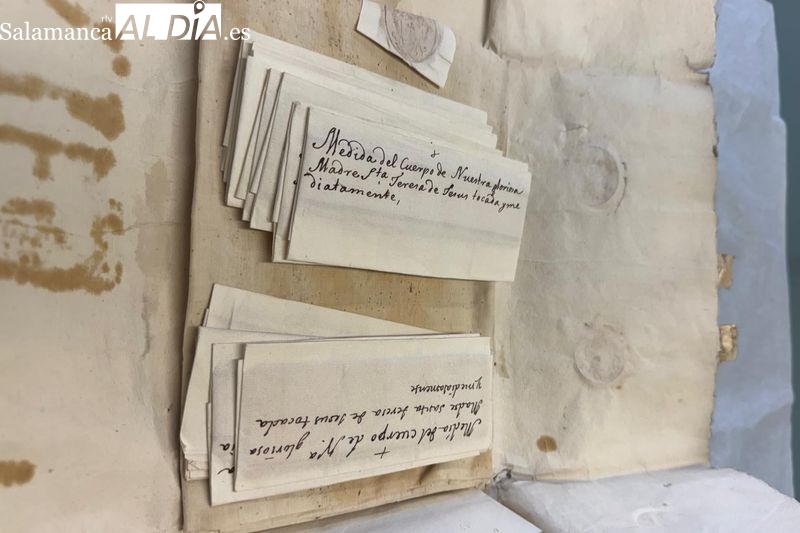 SalamancartvALDÍA.es
Medida del Cuerpo de Nuestra gloriosa
Madre Sta Teresa de Jesus tocada yme
diatamente,
Medida del cuerpo de Nra gloriosa
Madre santa teresa de Jesus tocada